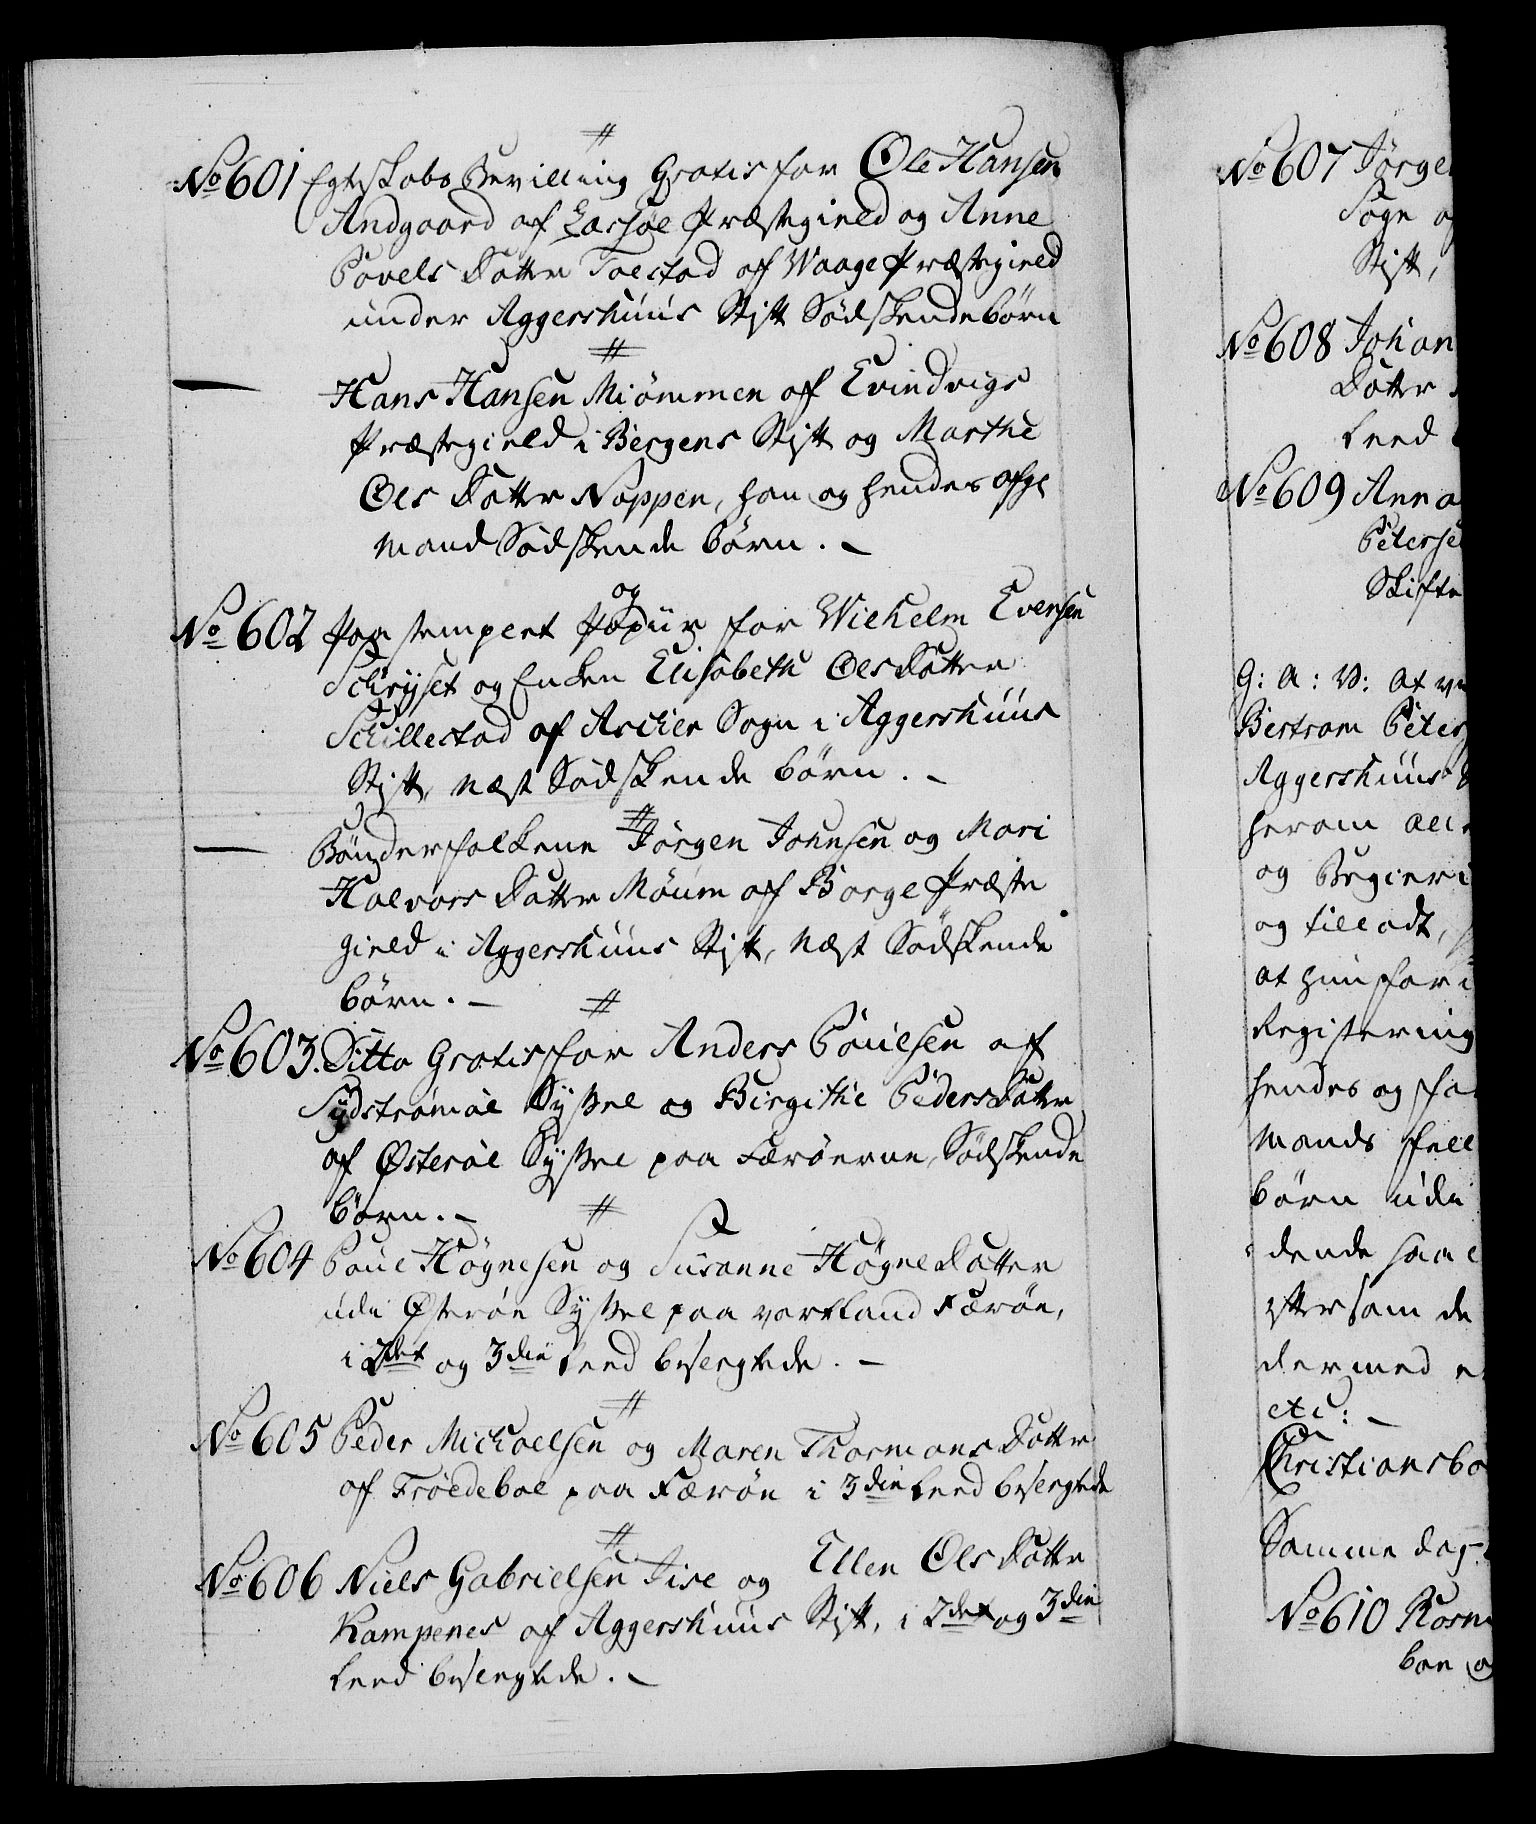 No 601 Egteskabs Bevilling Gratis for Ole Hansen
Andgaard af Lassøe Præstegield og Anne
Povels Datter Tolstad af Waage Præstegield
under Aggershuus Stift Södskendebörn
Hans Hansen Miömmen af Evindvigs
Præstegield i Bergens Stift og Marthe
Ols Datter Noppen, han og hendes afg:
Mand Södskende börn. –
og
No 602 Paa stemplet Papiir for Wilhelm Evensen
Schryset og Enken Elisabeth OlsDatter
Schillestad af Ascher Sogn i Aggershuus
Stift, Næst Södskende börn. –
Bönderfolkene Jörgen Johnsen og Mari
Halvors Datter Möum af Borge Præste
gield i Aggershuus Stift, Næst Södskende
börn. –
No 603. Ditto Gratis for Anders Pouelsen af
Sydstrømøe Syssel og Birgithe PedersDatter
af Østerøe Syssel paa Færöerne, Södskende
börn. –
No 604 Poul Högnesen og Susanne HögneDatter
udi Østeröe Syssel paa vort Land Færöe,
i 2det og 3die Leed beslegtede. –
No 605 Peder Michaelsen og Maren Thormans Datter
af Fröedeboe paa Færöe i 3die Leed beslegtede
No 606 Niels Gabrielsen Tise og Ellen Ols Datter
Kampenes af Aggershuus Stift, i 2det og 3die
Leed beslegtede. –
No 607 Jörge
Sogn o
Stift,
No 608 Johan
Datter
Leed
No 609 Anna
Peterse
Skifte
G: A: V: At v
Bertram Peters
Aggershuus
herom all
og Begieri
og tilladt,
at hun for
Registering
hendes og
Mands fell
börn udi
dende saa
eftersom de
dermed
etc: –
Christiansbo
Samme Dag
No 610 Rasm
boe o